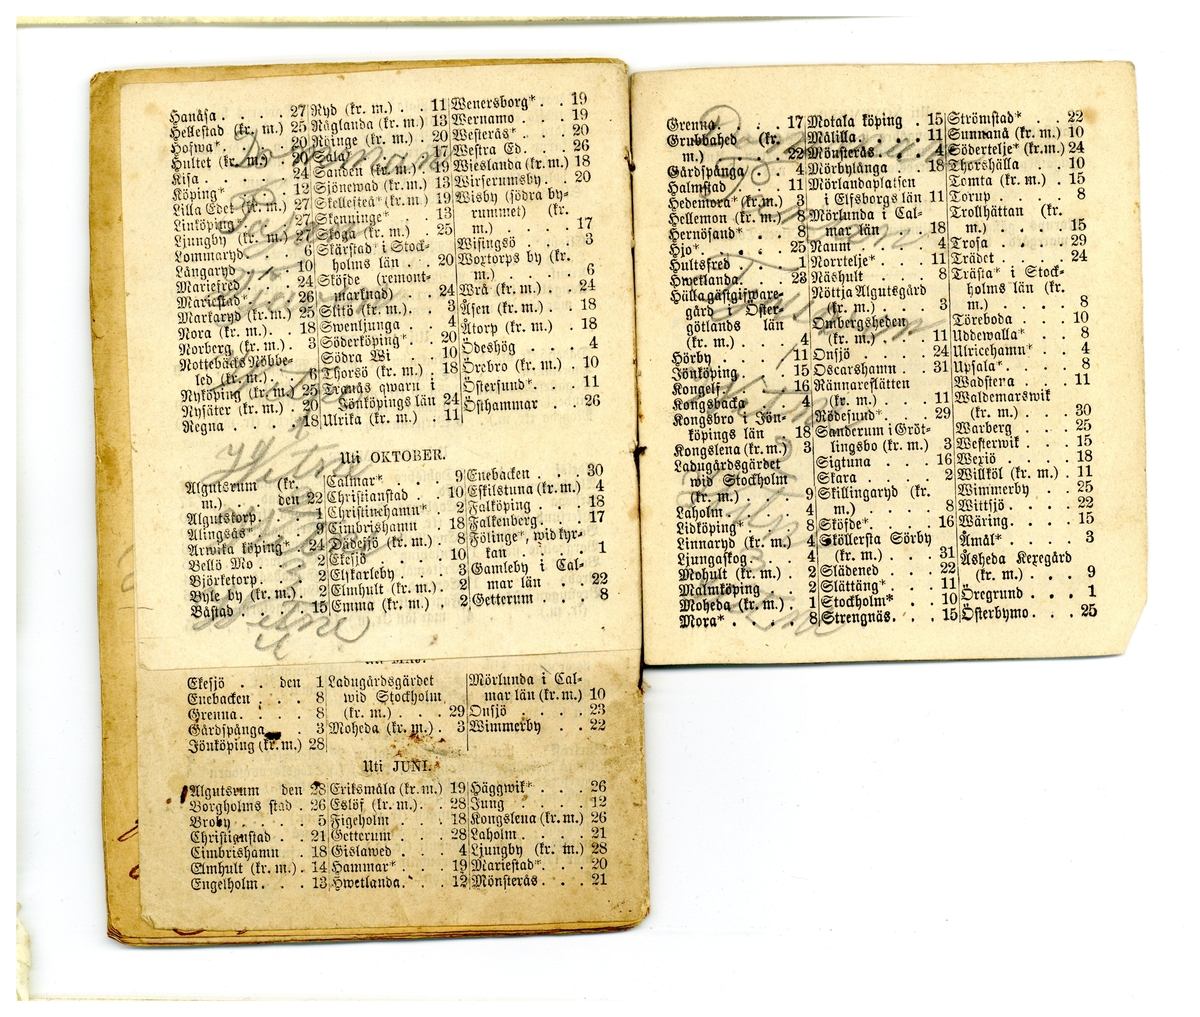 Hanåsa. . . . . 27
Hellestad (kr. m.) 25
Hofwa*. . . . . 20
Hultet (kr. m.) . 20
Kisa . . . . . 24
Köping* . . . . 12
Lilla Edet (kr. m.) 27
Linköping . . . 27
Ljungby (kr. m.) 27
Lommaryd. . . . 6
Långaryd . . . 10
Mariefred . . . 24
Mariestad*. . . 26
Markaryd (kr. m.) 25
Nora (kr. m.). . 18
Norberg (kr. m.) . 3
Nottebäcks Nöbbe-
led (kr. m.) . . 6
Nyköping (kr. m.) 25
Nysäter (kr. m.) . 20
Regna . . . . . 18
Ryd (kr. m.) . . 11
Råglanda (kr. m.) 13
Rödnge (kr. m.) . 20
Sala . . . . . 17
Sanden (kr. m.) . 19
Sjönewad (kr. m.) 13
Skellefteå* (kr. m.) 19
Skenninge* . . . 13
Skoga (kr. m.) . 25
Skärstad i Stock-
holms län . . . 20
Sköfde (remont-
marknad) . . . 24
Slitö (kr. m.). . . 3
Swenljunga . . . 4
Söderköping* . . 20
Södra Wi . . . 10
Thorsö (kr. m.) . 18
Tranås qwarn i
Jönköpings län 24
Ulrika (kr. m.) . 11
Wenersborg* . . 19
Wernamo . . . 19
Westerås* . . . 20
Westra Ed. . . 26
Wieslanda (kr. m.) 18
Wirserumsby. . . 20
Wisby (södra by-
rummet) (kr.
m.) . . . . . 17
Wisingsö . . . . 3
Woxtorps by (kr.
m.) . . . . . 6
Wrå (kr. m.) . . 24
Åsen (kr. m.) . . 18
Åtorp (kr. m.) . 18
Ödeshög . . . . 4
Örebro (kr. m.) . 10
Östersund*. . . 11
Östhammar . . . 26
Uti OKTOBER.
Algutsrum (kr.
m.) . . . den 22
Algutstorp. . . . 1
Alingsås* . . . 9
Arwika köping* . 24
Bellö Mo . . . . 2
Björketorp . . . 2
Byle by (kr. m.) . 2
Båstad . . . . . 15
Calmar* . . . . 9
Christianstad . . 10
Christinehamn* . 2
Cimbrishamn . . 18
Dädesjö (kr. m.) . 8
Ekesjö . . . . . 10
Elfkarleby . . . 3
Elmhult (kr. m.) . 2
Emma (kr. m.) . 2
Enebacken . . . 30
Eskilstuna (kr. m.) 4
Falköping . . . 18
Falkenberg. . . 17
Fölinge*, wid kyr-
kan . . . . . 1
Gamleby i Cal-
mar län . . . 22
Getterum . . . . 8
Uti MAJ.
Ekesjö . . den 1
Enebacken . . . 8
Grenna. . . . . 8
Gårdspånga . . . 3
Jönköping (kr. m.) 28
Ladugårdsgärdet
wid Stockholm
(kr. m.) . . . 29
Moheda (kr. m.) . 3
Mörlunda i Cal-
mar län (kr. m.) 10
Onsjö . . . . 23
Wimmerby . . . 22
Uti JUNI.
Algutsrum den 28
Borgholms stad . 26
Broby . . . . . 5
Christianstad . . 21
Cimbrishamn . . 18
Elmhult (kr. m.) . 14
Engelholm. . . . 13
Eriksmåla (kr. m.) 19
Eslöf (kr. m.). . . 28
Figeholm . . . 18
Getterum . . . 28
Gislawed . . . . 4
Hammar* . . . 19
Hwetlanda. . . . 12
Häggwik* . . . 26
Jung . . . . . 12
Kongslena (kr. m.) 26
Laholm. . . . . 21
Ljungby (kr. m.) 28
Mariestad*. . . 20
Mönsterås . . . 21
Grenna. . . . . 17
Grubbahed (kr.
m.) . . . . . 22
Gårdspånga . . . 4
Halmstad . . . 11
Hedemora* (kr. m.) 3
Hellemon (kr. m.) . 8
Hernösand* . . . 8
Hjo* . . . . . 25
Hultsfred . . . . 1
Hwetlanda. . . . 23
Hälla gästgifware-
gård i Öster-
götlands län
(kr. m.) . . . . 4
Hörby . . . . . 11
Jönköping . . . 15
Kongelf . . . . 16
Kongsbacka . . . 4
Kongsbro i Jön-
köpings län . 18
Kongslena (kr. m.) 3
Ladugårdsgärdet
wid Stockholm
(kr. m.) . . . . 9
Laholm . . . . . 4
Lidköping* . . . 8
Linnaryd (kr. m.) 4
Ljungaskog . . . 4
Mohult (kr. m.) . 2
Malmköping . . 2
Moheda (kr. m.) . 1
Mora* . . . . . 8
Motala köping . 15
Målilla . . . . 11
Mönsterås . . . 4
Mörbylånga . . 18
Mörlandaplatsen
i Elfsborgs län 11
Mörlunda i Cal-
mar län . . . 18
Naum . . . . . 4
Norrtelje* . . . 11
Näshult . . . . 8
Nöttja Algutsgård
(kr. m.) . . . 3
Ombergsheden
(kr. m.) . . . 11
Onsjö . . . . . 24
Oscarshamn . . 31
Rännareslätten
(kr. m.) . . . 11
Rödesund* . . . 29
Sanderum i Gröt-
lingsbo (kr. m.) 3
Sigtuna . . . . 16
Skara . . . . . 2
Skillingaryd (kr.
m.) . . . . . 8
Sköfde* . . . . 16
Sköllersta Sörby
(kr. m.) . . . 31
Slädened . . . 22
Slättäng* . . . 11
Stockholm* . . . 10
Strengnäs. . . . 15
Strömstad* . . . 22
Sunnanå (kr. m.) 10
Södertelje* (kr. m.) 24
Thorshälla . . . 10
Tomta (kr. m.) . 15
Torup . . . . . 8
Trollhättan (kr.
m.) . . . . . 15
Trosa . . . . . 29
Trädet . . . . 24
Träfta* i Stock-
holms län (kr.
m.) . . . . . 8
Töreboda . . . 10
Uddewalla* . . . 8
Ulricehamn* . . 4
Upsala* . . . . 8
Wadstena . . . 11
Waldemarswik
(kr. m.) . . . 30
Warberg . . . 25
Westerwik . . . 15
Wexiö . . . . . 18
Willköl (kr. m.) . 11
Wimmerby . . . 25
Wittsjö . . . . 22
Wäring. . . . . 15
Åmål* . . . . . 3
Åsheda Kexegård
(kr. m.) . . . 9
Öregrund . . . . 1
Österbymo. . . 25